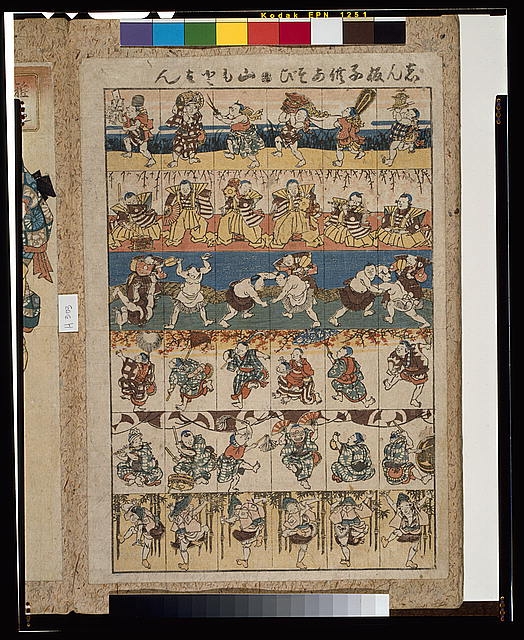 Kodak EPN 1251
志ん板子供あそび 山もとはん